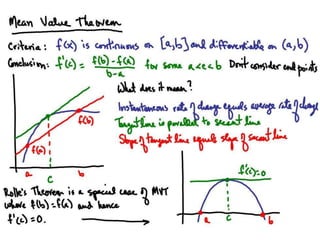 Mean Value Theorem
Criteria: f(x) is continuous on [a,b] and differentiable on (a,b)
Conclusion: f'(c) = f(b)-f(a) / b-a for some a<c<b Don't consider end points
What does it mean?
Instantaneous rate of change equals average rate of change
Tangent line is parallel to secant line
Slope of tangent line equals slope of secant line
f(b)
f(a)
a c b
Rolle's Theorem is a special case of MVT
where f(b)=f(a) and hence
f'(c)=0.
f'(c)=0
a c b